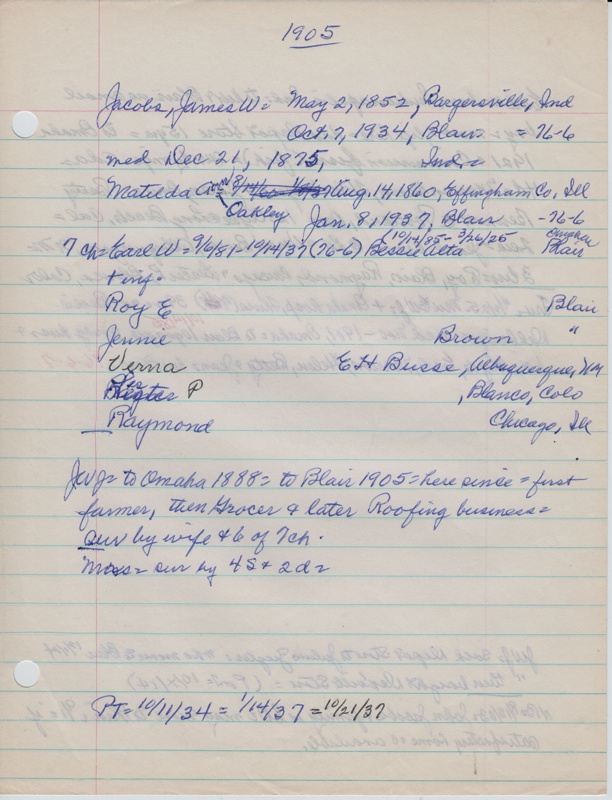 1905
Jacobs, James W = May 2, 1852, Bargersville, Ind
Oct. 7, 1934, Blair = 76-6
med Dec 21, 1875, Ind. =
Matilda Ann Aug. 14, 1860, Effingham Co, Ill
Oakley Jan. 8, 1937, Blair - 76-6
(10/14/85 - 3/26/25
7 ch = Earl W = 9/6/81 - 10/14/37 (76-6) Bessie Alta Blair
Roy E Blair
Jennie Brown "
Verna E H Busse, Albuquerque, NM
P , Blanco, Colo
Raymond Chicago, Ill
JWJ = to Omaha 1888 = to Blair 1905 = here since = first
farmer, then Grocer & later Roofing business =
sur by wife & 6 of 7 ch.
Mrs = sur by 4 S + 2 d =
PT = 10/11/34 = 1/14/37 = 10/21/37